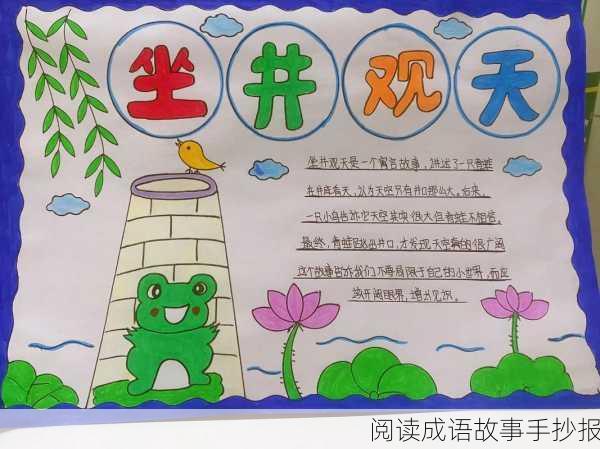 坐井观天
坐井观天是一个寓言故事,讲述了一只青蛙
在井底看天,以为天空只有井口那么大。后来,
一只小鸟告诉它天空其实很大但青蛙不相信,
最终,青蛙跳出井口,才发现天空真的很广阔
这个故事告诉我们不要局限于自己的小世界,而应
该开阔眼界,增长见识。
阅读成语故事手抄报